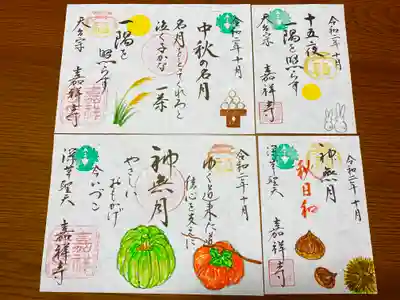 令和二年十月
中秋の名月
名月をとってくれろと
泣く子かな
一茶
一隅を照らす
天台宗
嘉祥寺
令和二年十月
十五夜
一隅を照らす
天台宗
嘉祥寺
令和二年十月
神無月
やさしい
おもかげ
今いづこ
深草聖天
嘉祥寺
令和二年十月
神無月
秋日和
深草聖天
嘉祥寺